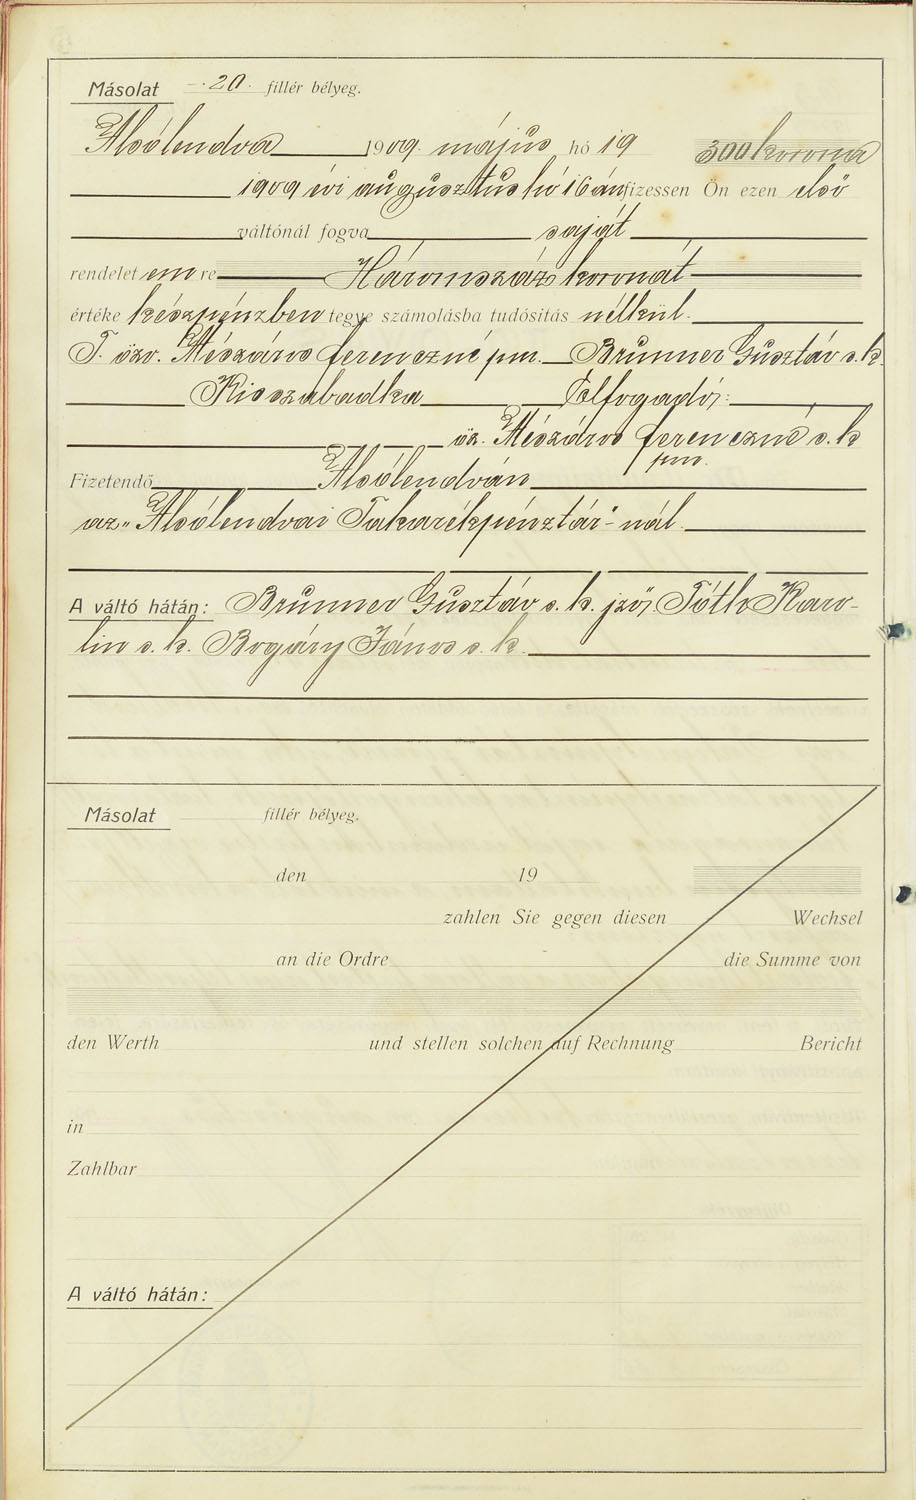 Másolat –20. fillér bélyeg.
Alsólendva 1909. május hó 19 300 korona
1909 évi augusztus hó 16án fizessen Ön ezen első
váltónál fogva saját
rendelet em re Háromszáz koronát
értéke készpénzben tegye számolásba tudósitás nélkül.
T. özv. Mészáros Ferenczné pm. Brunner Gusztáv s. k.
Kisszabadka Elfogadó:
öz. Mészáros Ferenczné s. k
pm.
Fizetendő Alsólendván
az „Alsólendvai Takarékpénztár"-nál.
A váltó hátán: Brunner Gusztáv s. k. Tóth Karo-
lin s. k. Bogáry János s. k.
Másolat fillér bélyeg.
den 19
zahlen Sie gegen diesen Wechsel
an die Ordre die Summe von
den Werth und stellen solchen auf Rechnung Bericht
in
Zahlbar
A váltó hátán: